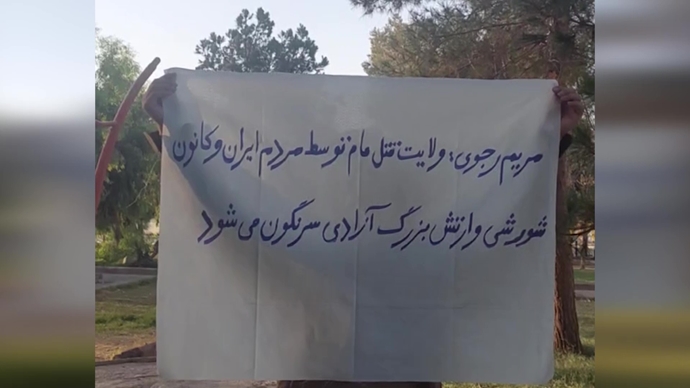 مریم رجوی: ولایت قتل عام توسط مردم ایران و کانون
شورشی و ارتش بزرگ آزادی سرنگون می شود